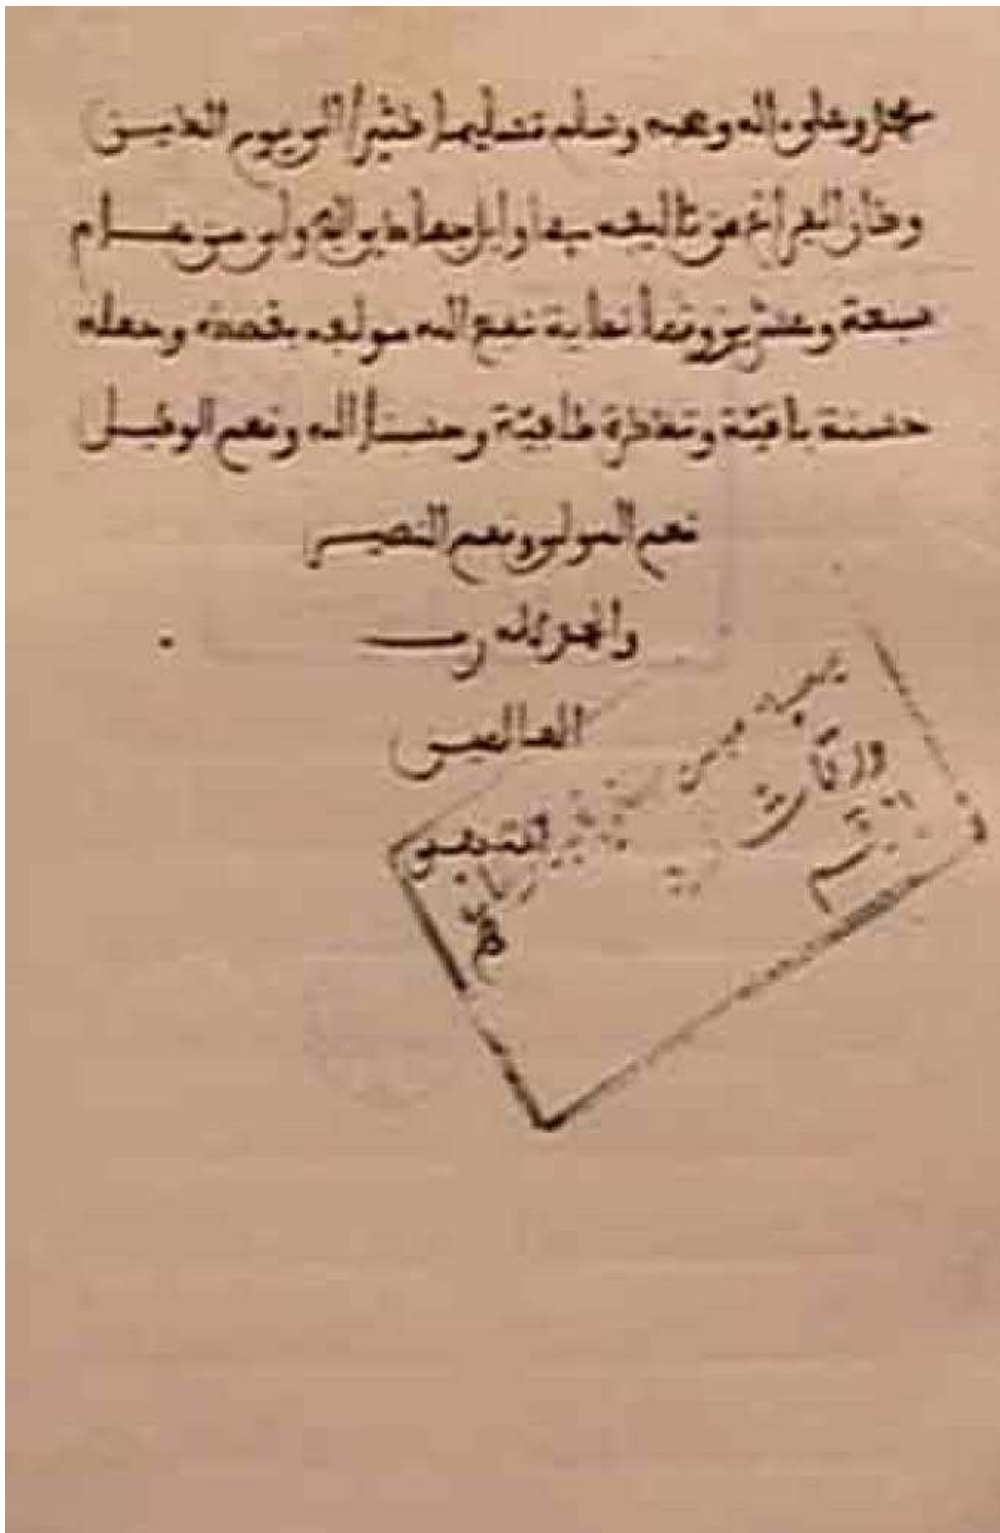 محمد وعلى اله وصحبه وسلم تسليما كثيرا الى يوم الدين
وكان الفراغ من تاليفه في اوايل جمادى الاولى من عام
سبعة وعشرين وثمانماية نفع الله مولفه بقصده وجعله
حسنة باقية وتذكرة كافية وحسبنا الله ونعم الوكيل
نعم المولى ونعم النصير
والحمد لله رب
العالمين
انتهى
ورقات
قسم